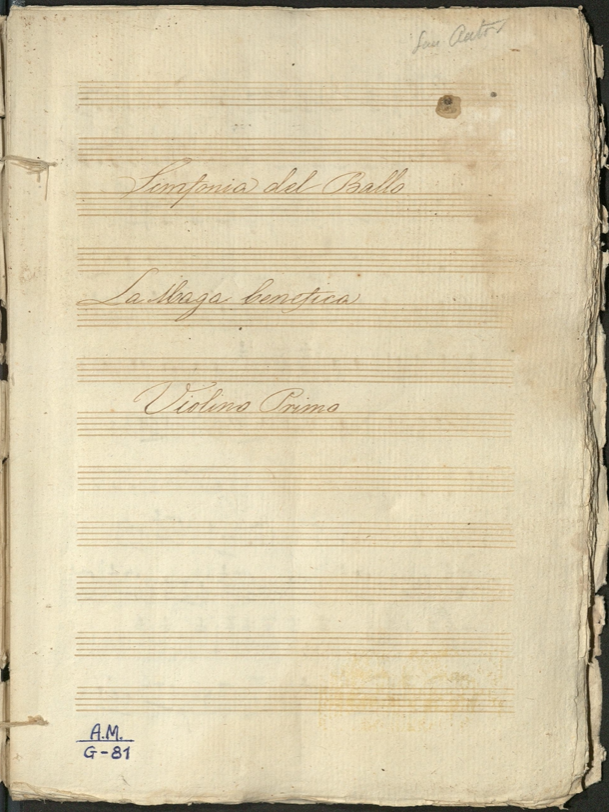 Sin Autor
Simfonia del Ballo
La Maga benefica
Violino Primo
A.M.
G-81